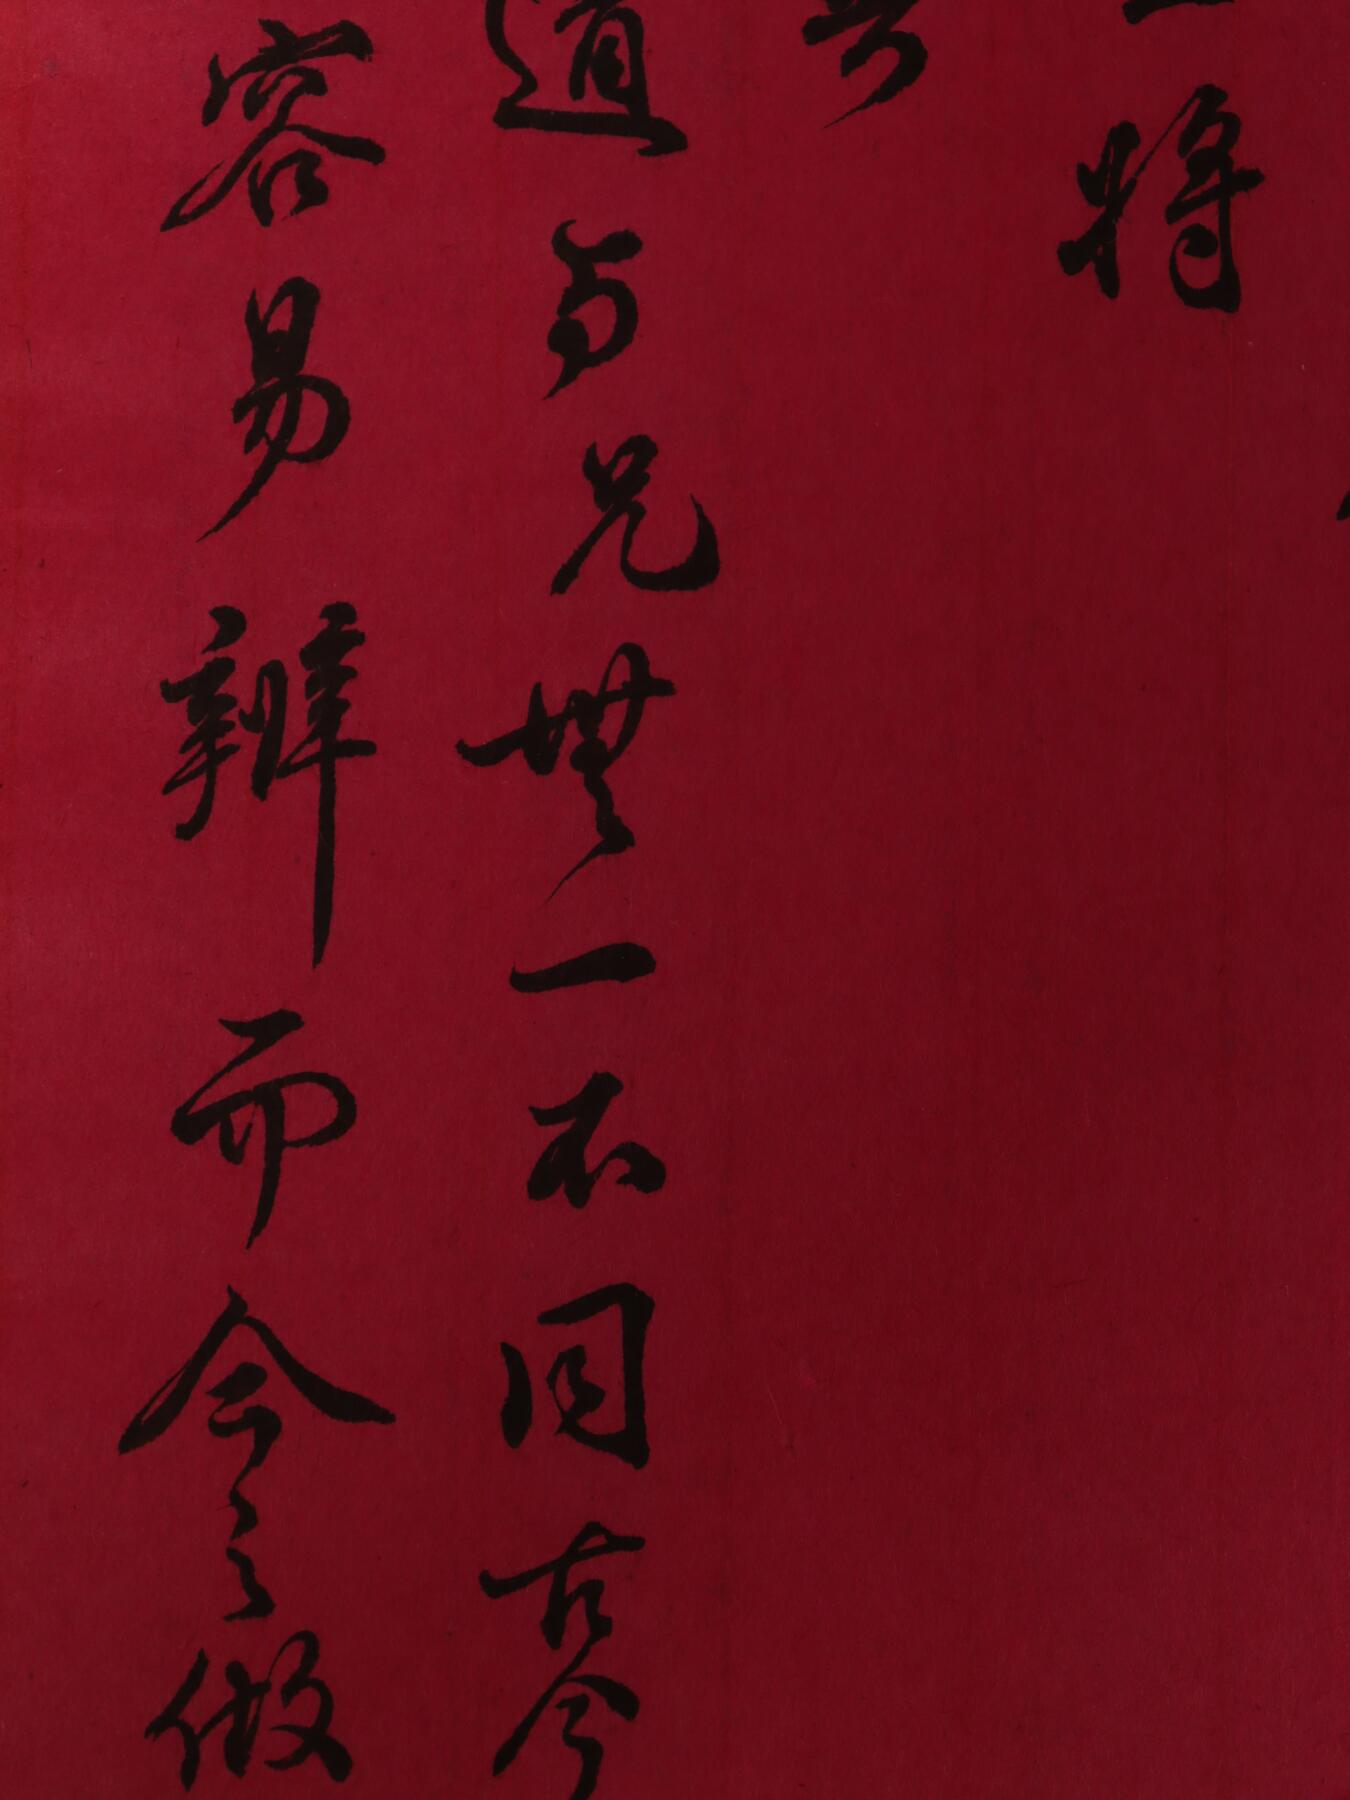 将
道与兄無一不同古今
容易辨而今之做